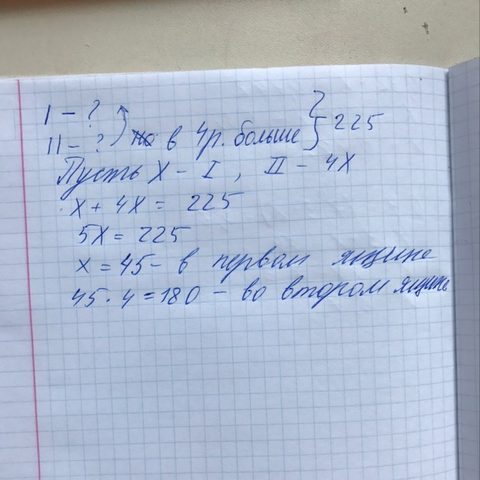 I - ?
II - ? в 4р. больше } 225
Пусть X - I, II - 4X
X + 4X = 225
5X = 225
x = 45 - в первом ящике
45 · 4 = 180 - во втором ящике